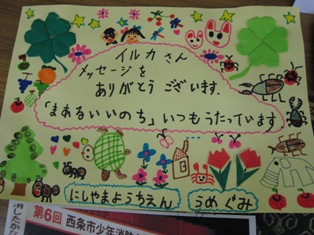 イルカ さん
メッセージを
ありがとう ございます.
「まあるい いのち」いつも うたっています
にしやまようちえん
うめぐみ
第6回 西条市少年消防